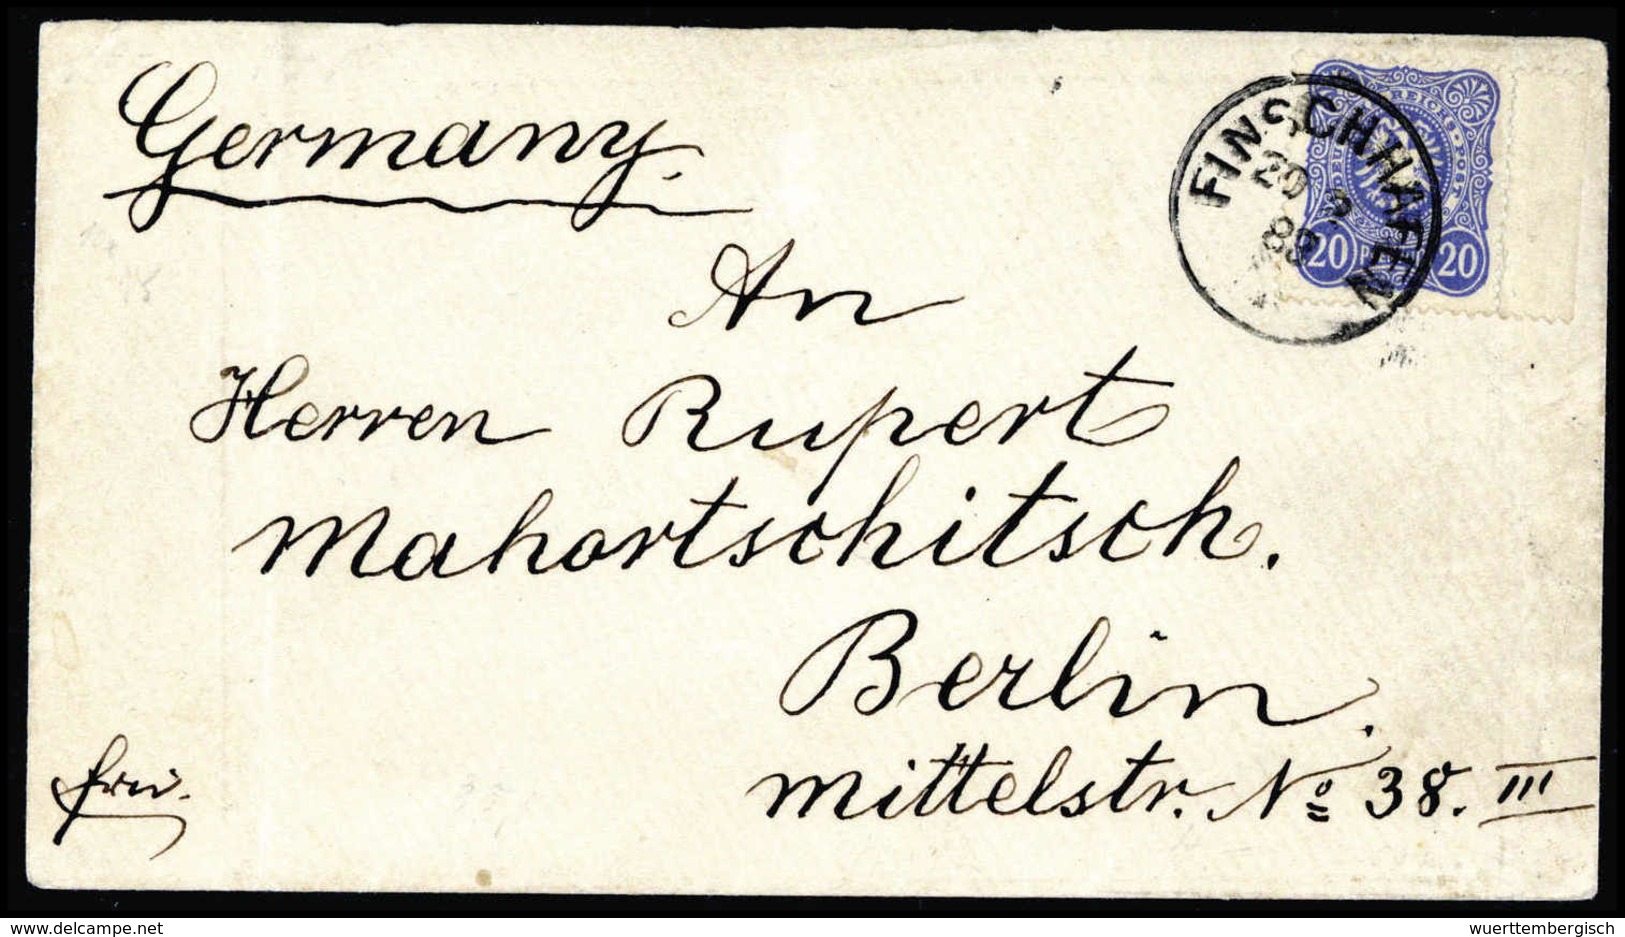 Germany.
FINSCHHAFEN
20 9
89
DEUTSCHE REICHS-POST
20 PFENNIG 20
An
Herren Rupert
Mahortschitsch.
Berlin.
Mittelstr. No 38. III
frei.
www.delcampe.net
wuerttembergisch